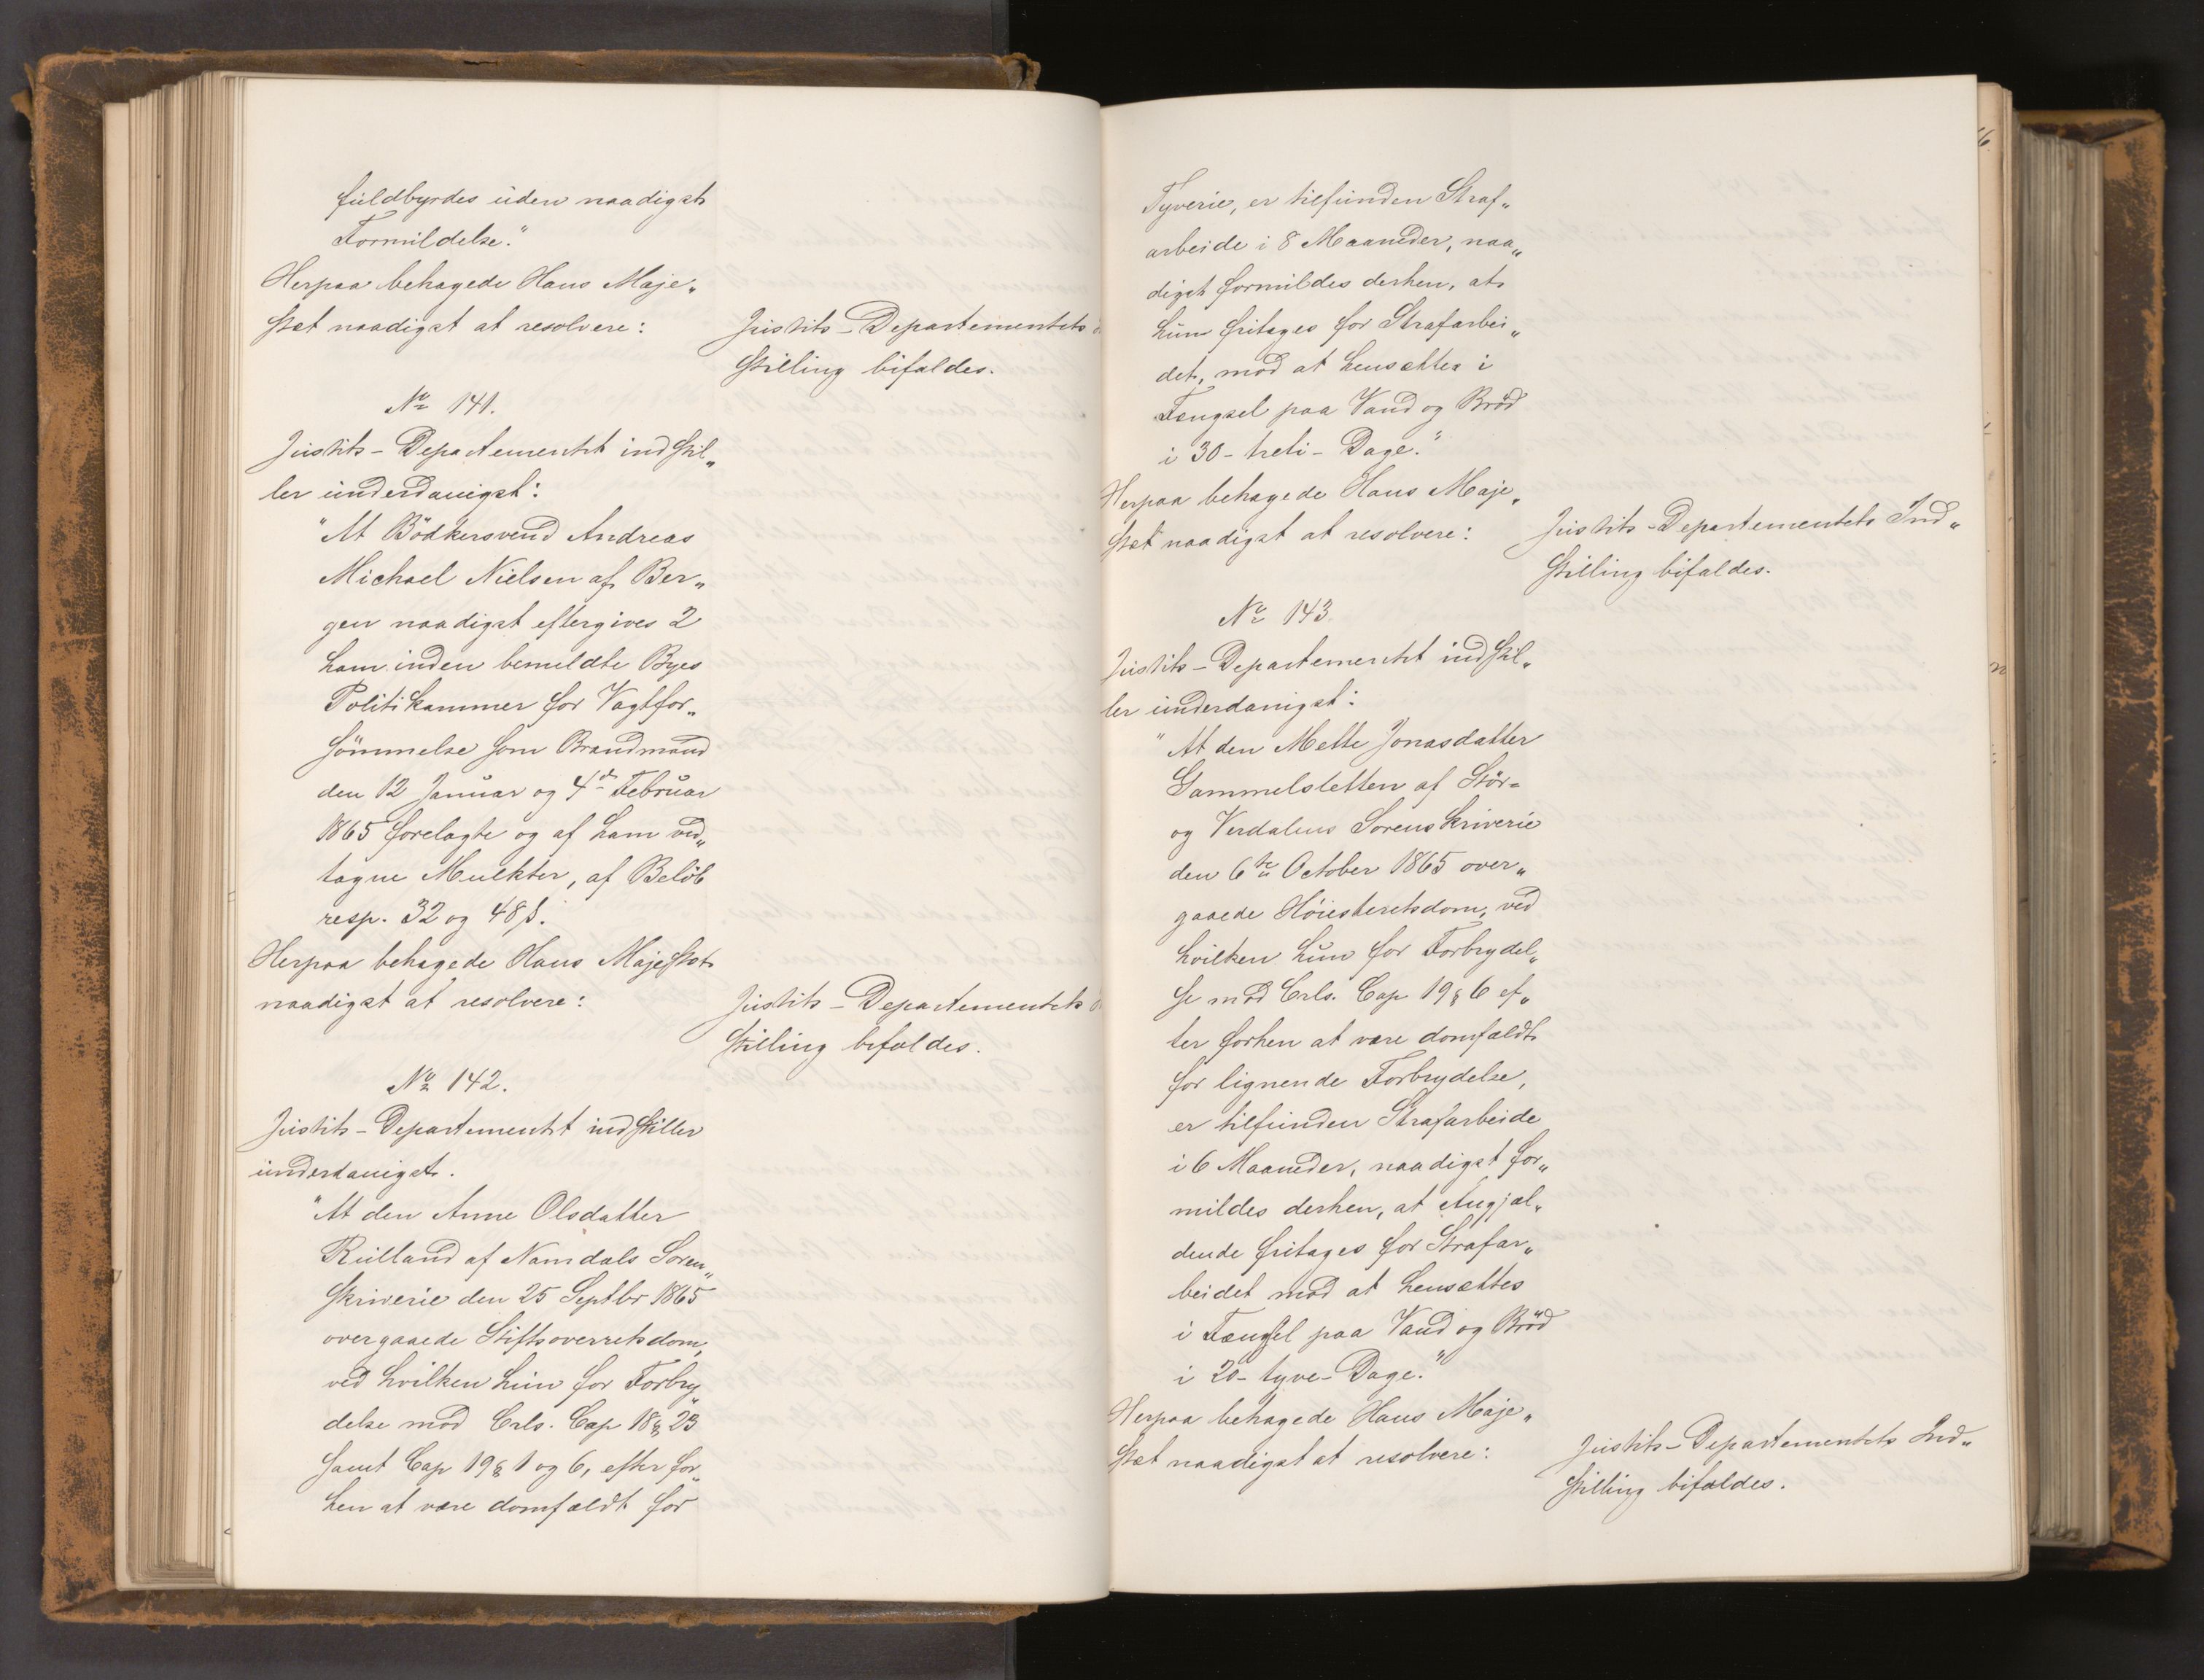 fuldbyrdes uden naadigst
Formildelse."
Herpaa behagede Hans Maje„
stæt naadigst at resolvere:
Justits-Departementets
Stilling bifaldes.
No 141.
Justits-Departementet indstil„
ler underdanigst:
"At Bödkersvend Andreas
Michael Nielsen af Ber„
gen naadigst eftergives 2
ham inden bemeldte Byes
Politikammer for Vagtfor„
sömmelse som Brandmand
den 12 Januar og 4de Februar
1865 forelagte og af ham ved„
tagne Mulkter, af Belöb
resp. 32 og 48 ß.
Herpaa behagede Hans Majestæt
naadigst at resolvere:
Justits-Departementets
Stilling bifaldes.
No 142.
Justits-Departementet indstiller
underdanigst.
"At den Anne Olsdatter
Rulland af Namdals Soren„
skriverie den 25 Septbr 1865
overgaaede Stiftsoverretsdom,
ved hvilken hun for Forbry„
delse mod Crls. Cap 18 § 23
samt Cap 19 § 1 og 6, efter for„
hen at være domfældt for
Tyverie, er tilfunden Straf„
arbeide i 8 Maaneder, naa„
digst formildes derhen, at
hun fritages for Strafarbei„
det, mod at hensættes i
Fængsel paa Vand og Bröd
i 30-treti-Dage."
Herpaa behagede Hans Maje„
stæt naadigst at resolvere:
Justits-Departementets Ind„
stilling bifaldes.
No 143.
Justits-Departementet indstil„
ler underdanigst:
"At den Mette Jonasdatter
Gammelsletten af Stör-
og Verdalens Sorenskriverie
den 6te October 1865 over„
gaaede Höiesteretsdom, ved
hvilken hun for Forbrydel„
se mod Crls. Cap 19 § 6 ef„
ter forhen at være domfældt
for lignende Forbrydelse,
er tilfunden Strafarbeide
i 6 Maaneder, naadigst for„
mildes derhen, at Angjæl„
dende fritages for Strafar„
beidet mod at hensættes
i Fængsel paa Vand og Bröd
i 20-tyve-Dage."
Herpaa behagede Hans Maje„
stæt naadigst at resolvere:
Justits-Departementets Ind„
stilling bifaldes.